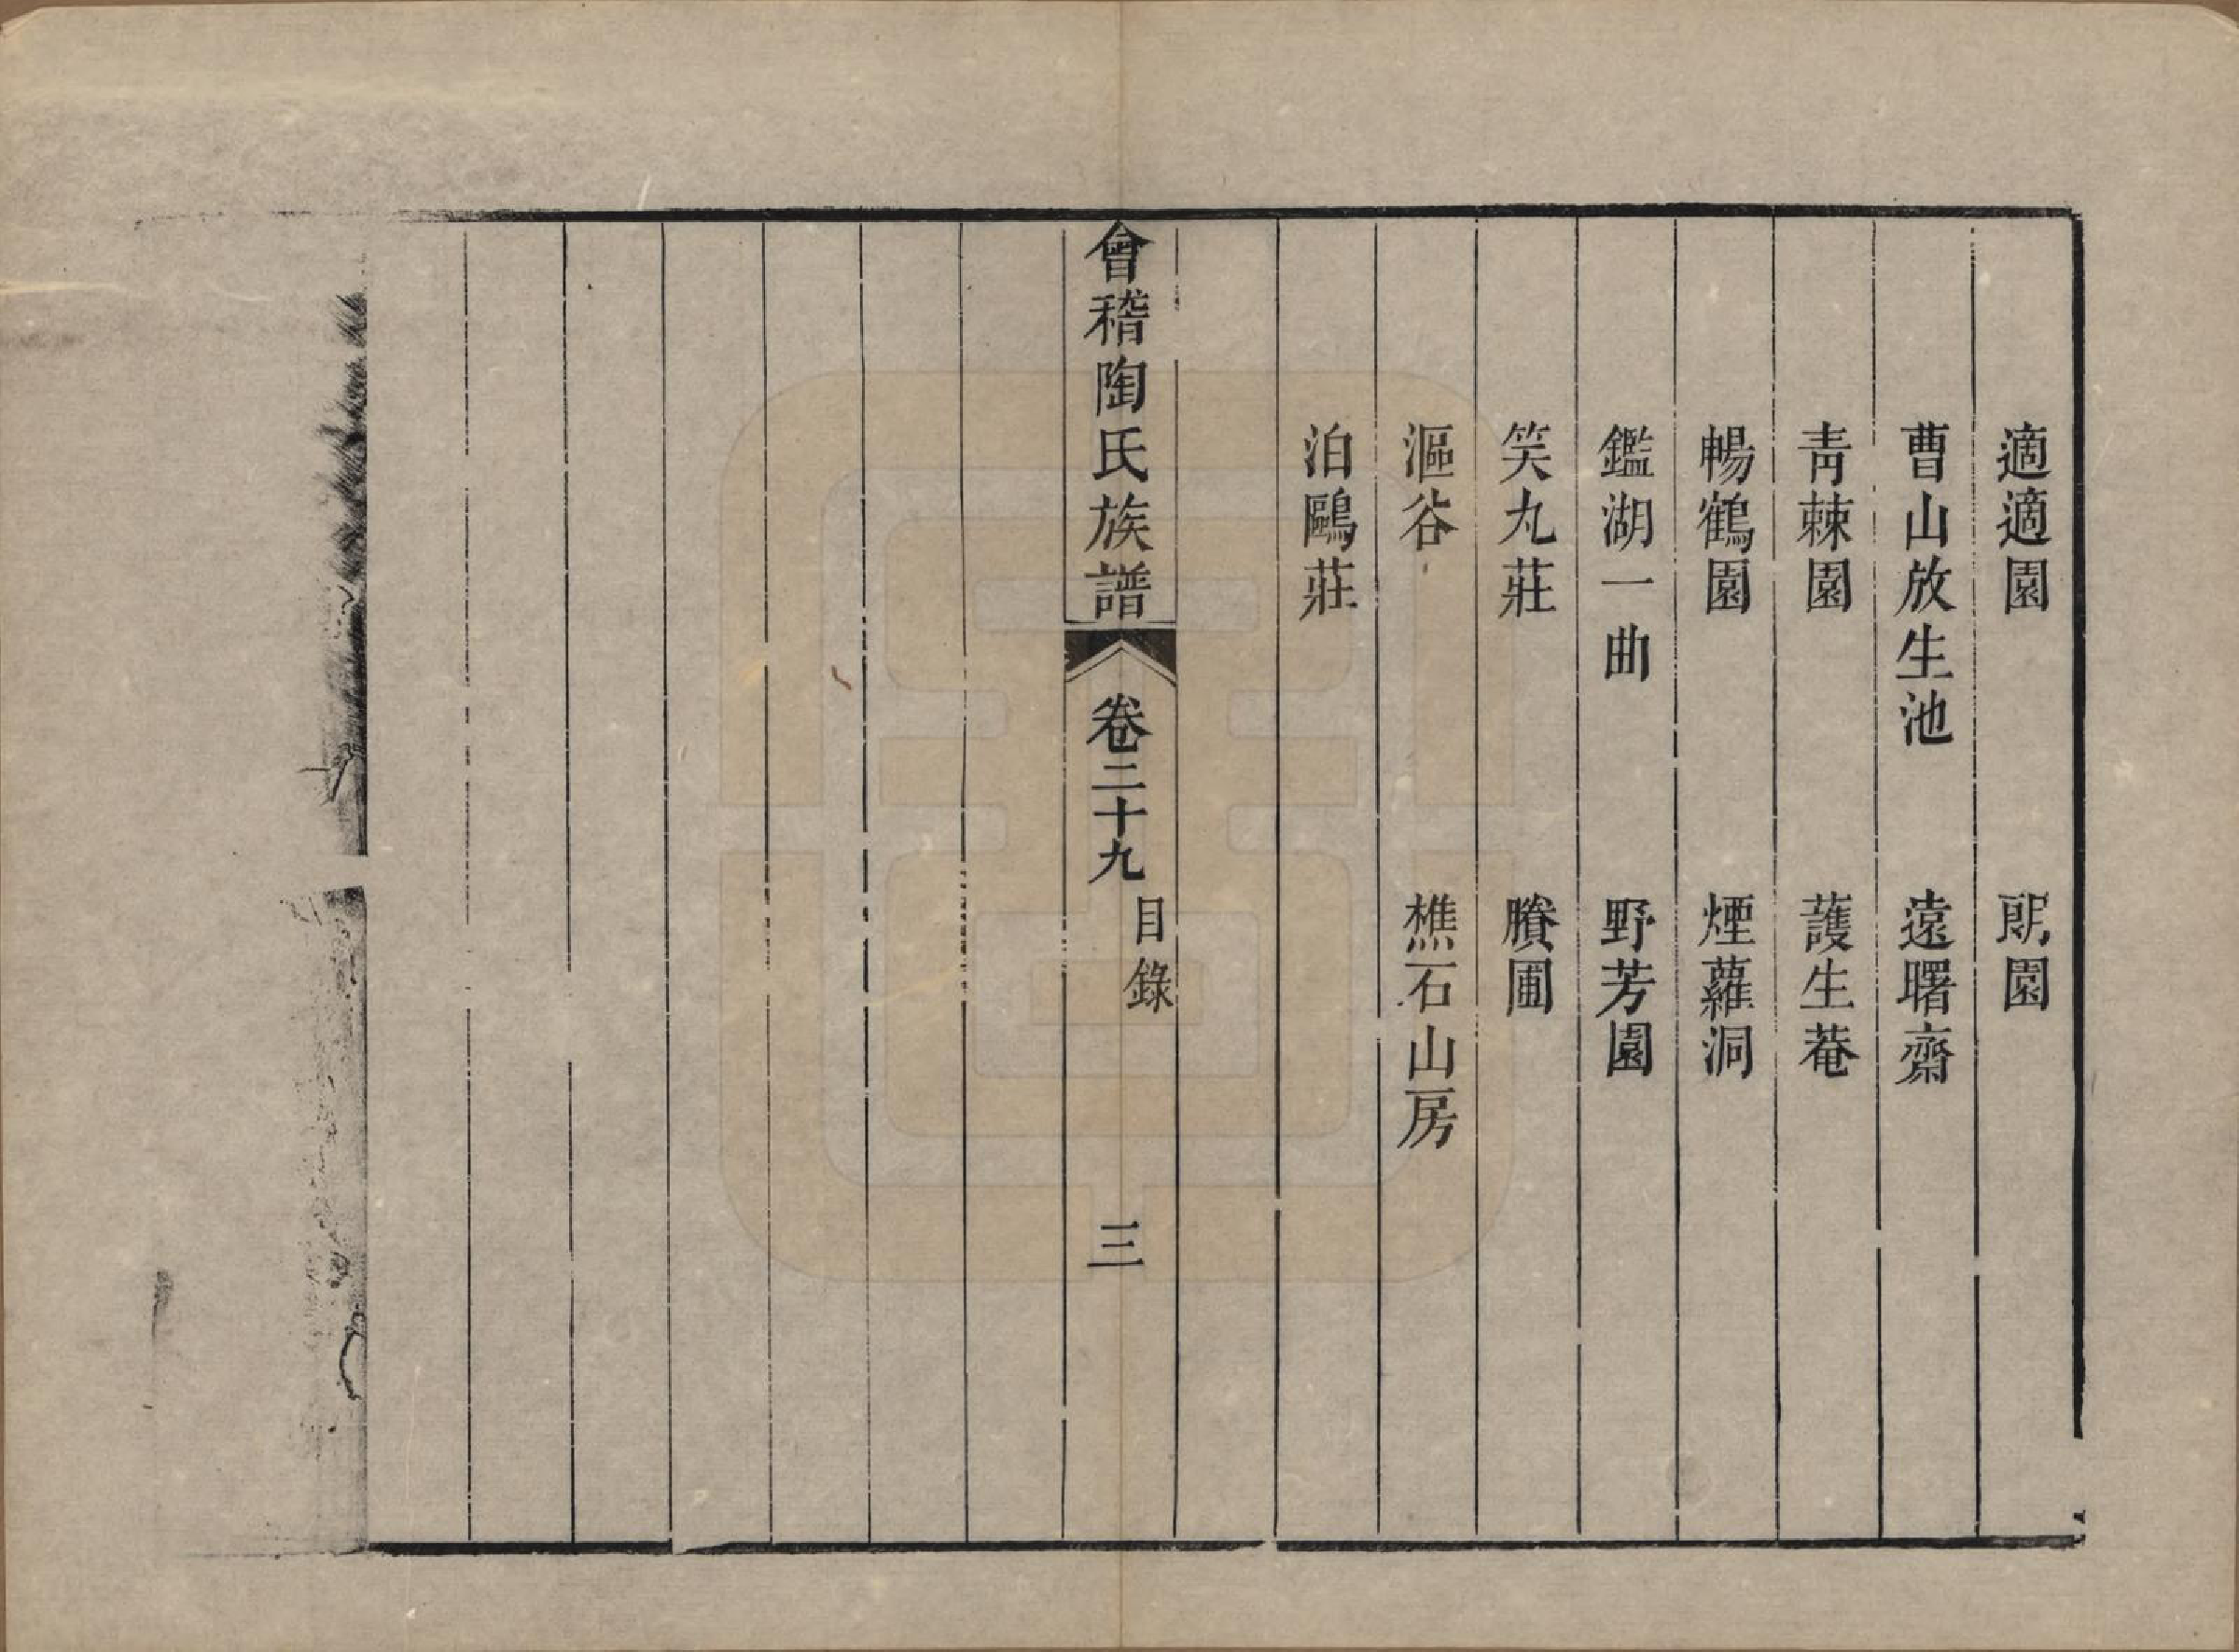 適適園　朖園
曹山放生池　遠曙齋
青棘園　護生菴
暢鶴園　煙蘿洞
鑑湖一曲　野芳園
笑丸莊　賸圃
漚谷　樵石山房
泊鷗莊
會稽陶氏族譜　卷二十九　目錄　三